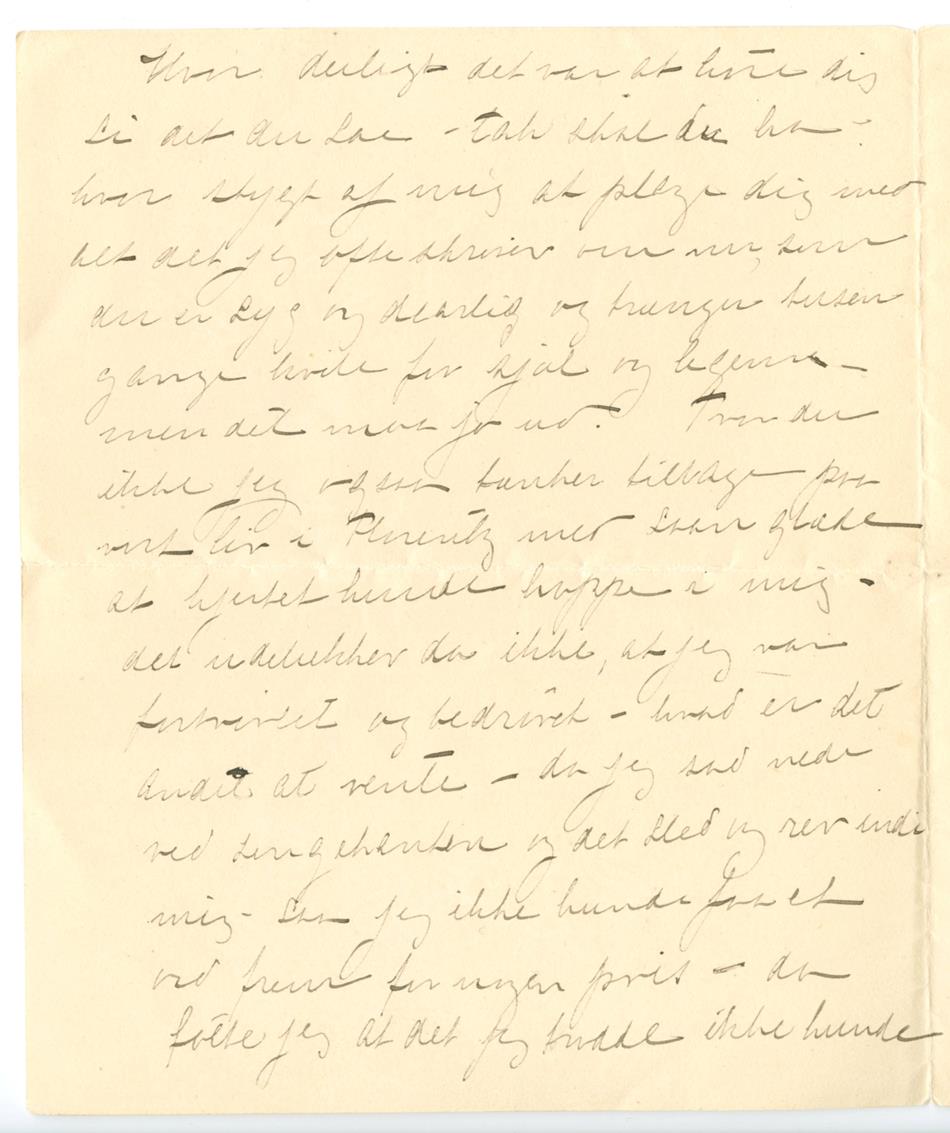 Hvor deiligt det var at høre dig
si det du sae – tak skal du ha –
hvor stygt af mig at plage dig med
alt det jeg ofte skriver om nu, som
du er syg og daarlig og trænger tusen
gange hvile for sjæl og legeme –
men det maa jo ud. Tror du
ikke jeg ogsaa tænker tilbage paa
vort liv i med saan glæde
at hjertet kunde hoppe i mig –
det udelukker da ikke, at jeg var
fortvivlet og bedrøvet – hvad er det
andet at vente – da jeg sad nede
ved sengekanten og det sled og rev indi
mig – saa jeg ikke kunde faa et
ord frem for nogen pris – da
følte jeg at det jeg ikke kunde